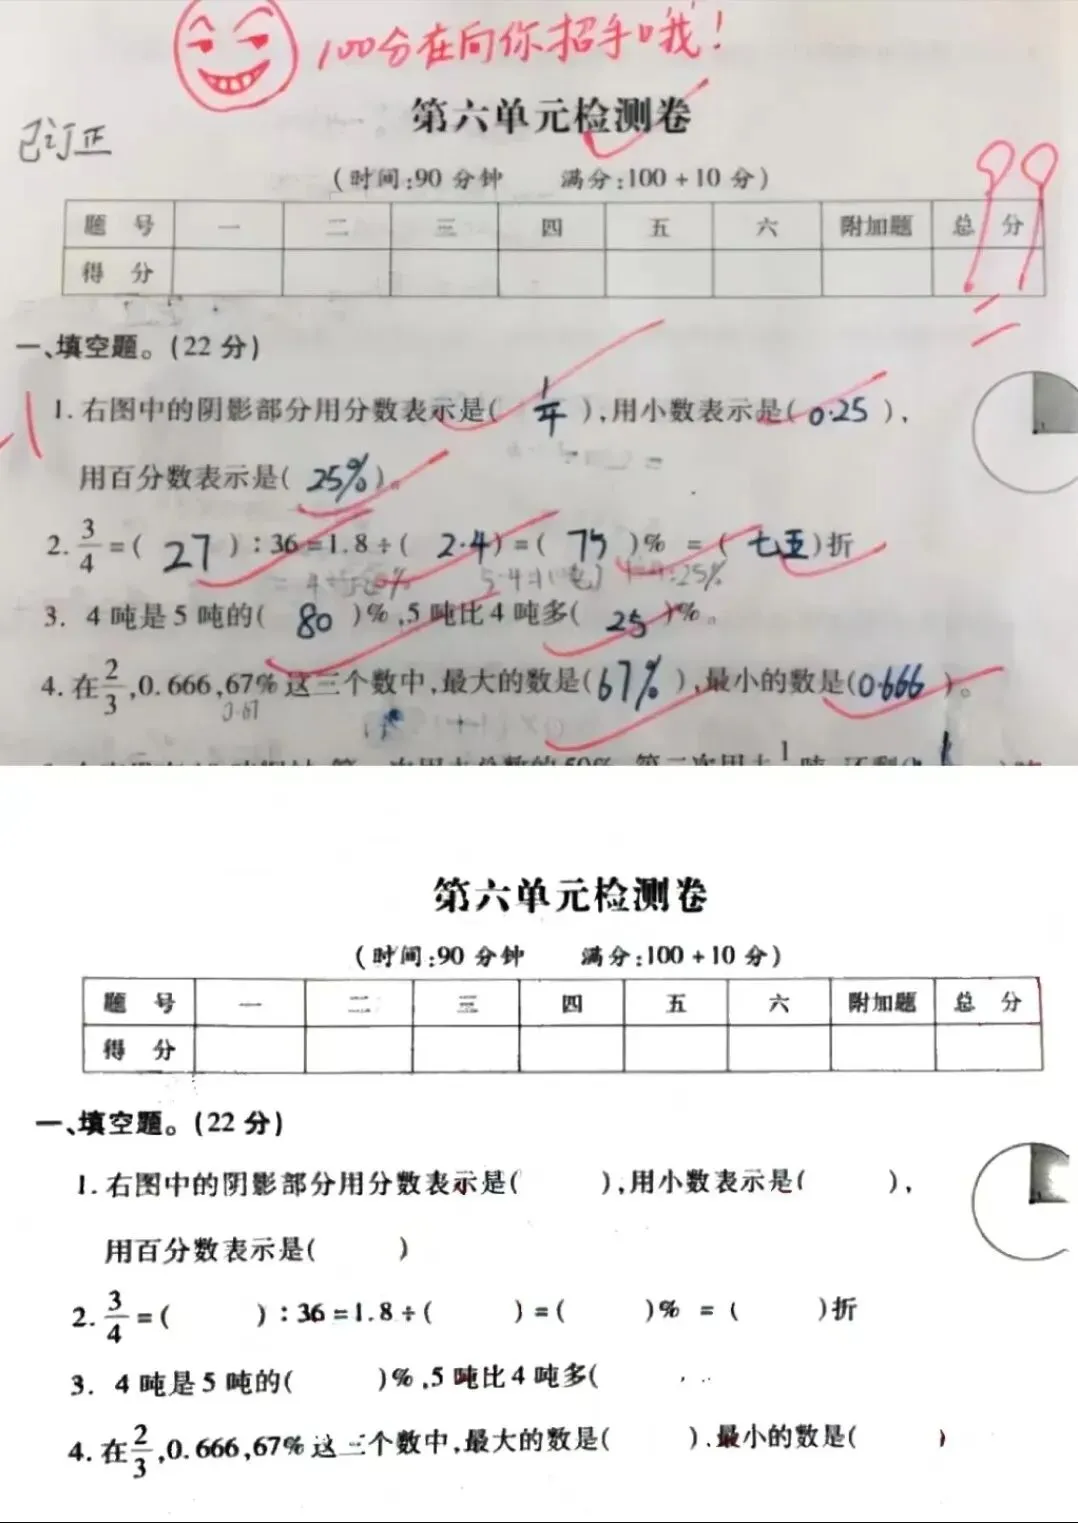 100分在向你招手哦!
第六单元检测卷
已订正
(时间:90分钟 满分:100+10分)
99
题 号 一 二 三 四 五 六 附加题 总 分
得 分
一、填空题。(22分)
1. 右图中的阴影部分用分数表示是( 1/4 ),用小数表示是( 0.25 ),
用百分数表示是( 25% )。
2. 3/4=( 27 ):36=1.8÷( 2.4 )=( 75 )% =( 七五 )折
3. 4吨是5吨的( 80 )%,5吨比4吨多( 25 )%。
4. 在2/3,0.666,67%这三个数中,最大的数是( 67% ),最小的数是( 0.666 )。
0.67
第六单元检测卷
(时间:90分钟 满分:100+10分)
题 号 一 二 三 四 五 六 附加题 总 分
得 分
一、填空题。(22分)
1. 右图中的阴影部分用分数表示是( ),用小数表示是( ),
用百分数表示是( )
2. 3/4=( ):36=1.8÷( )=( )% =( )折
3. 4吨是5吨的( )%,5吨比4吨多(
4. 在2/3,0.666,67%这三个数中,最大的数是( ),最小的数是( )